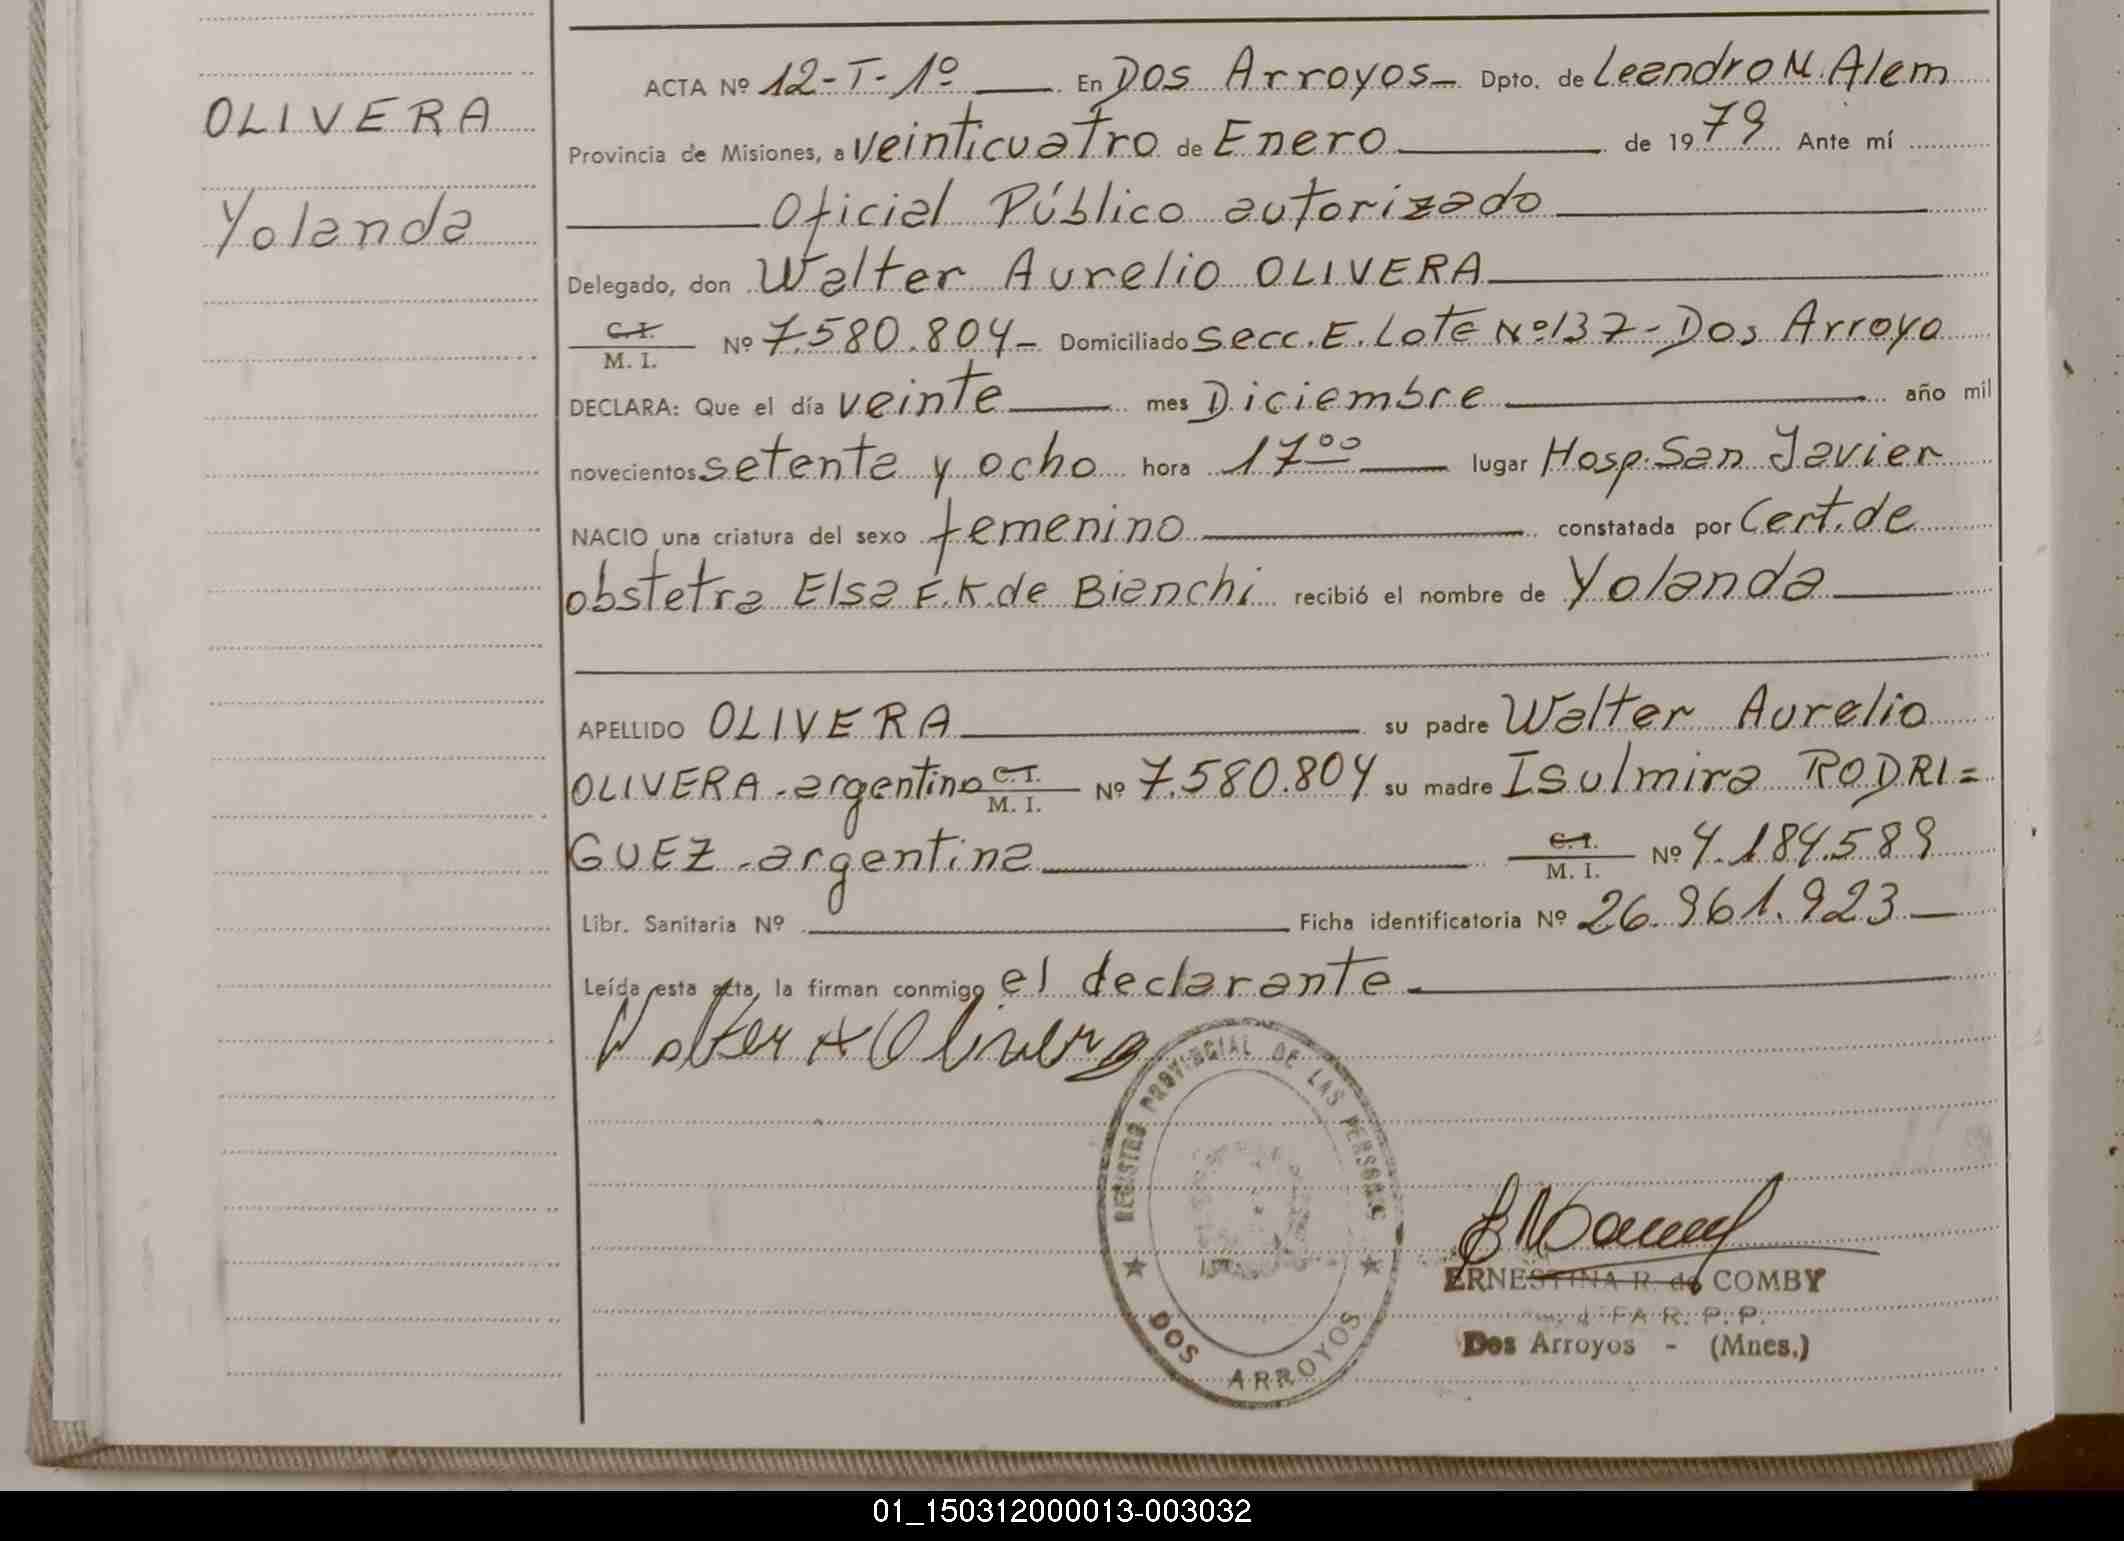 OLIVERA
Yolanda
ACTA Nº 12-T-1º En Dos Arroyos Dpto. de Leandro N. Alem
Provincia de Misiones, a veinticuatro de Enero de 1979 Ante mí
Oficial Público autorizado
Delegado, don Walter Aurelio OLIVERA
C.I. M. I. Nº 7.580.804 Domiciliado Secc. E. Lote Nº 137- Dos Arroyo
DECLARA: Que el día veinte mes Diciembre año mil
novecientos setenta y ocho hora 17⁰⁰ lugar Hosp. San Javier
NACIO una criatura del sexo femenino constatada por Cert. de
obstetra Elsa F. K. de Bianchi recibió el nombre de Yolanda
APELLIDO OLIVERA su padre Walter Aurelio
OLIVERA - argentino C.I. M. I. Nº 7.580.804 su madre Isulmira RODRI=
GUEZ - argentina C.I. M. I. Nº 4.184.589
Libr. Sanitaria Nº Ficha identificatoria Nº 26.961.923
Leída esta acta, la firman conmigo el declarante
Walter A Olivera
REGISTRO PROVINCIAL DE LAS PERSONAS
DOS ARROYOS
ERNESTINA R. de COMBY
R. P. P.
Dos Arroyos - (Mnes.)
01_150312000013-003032